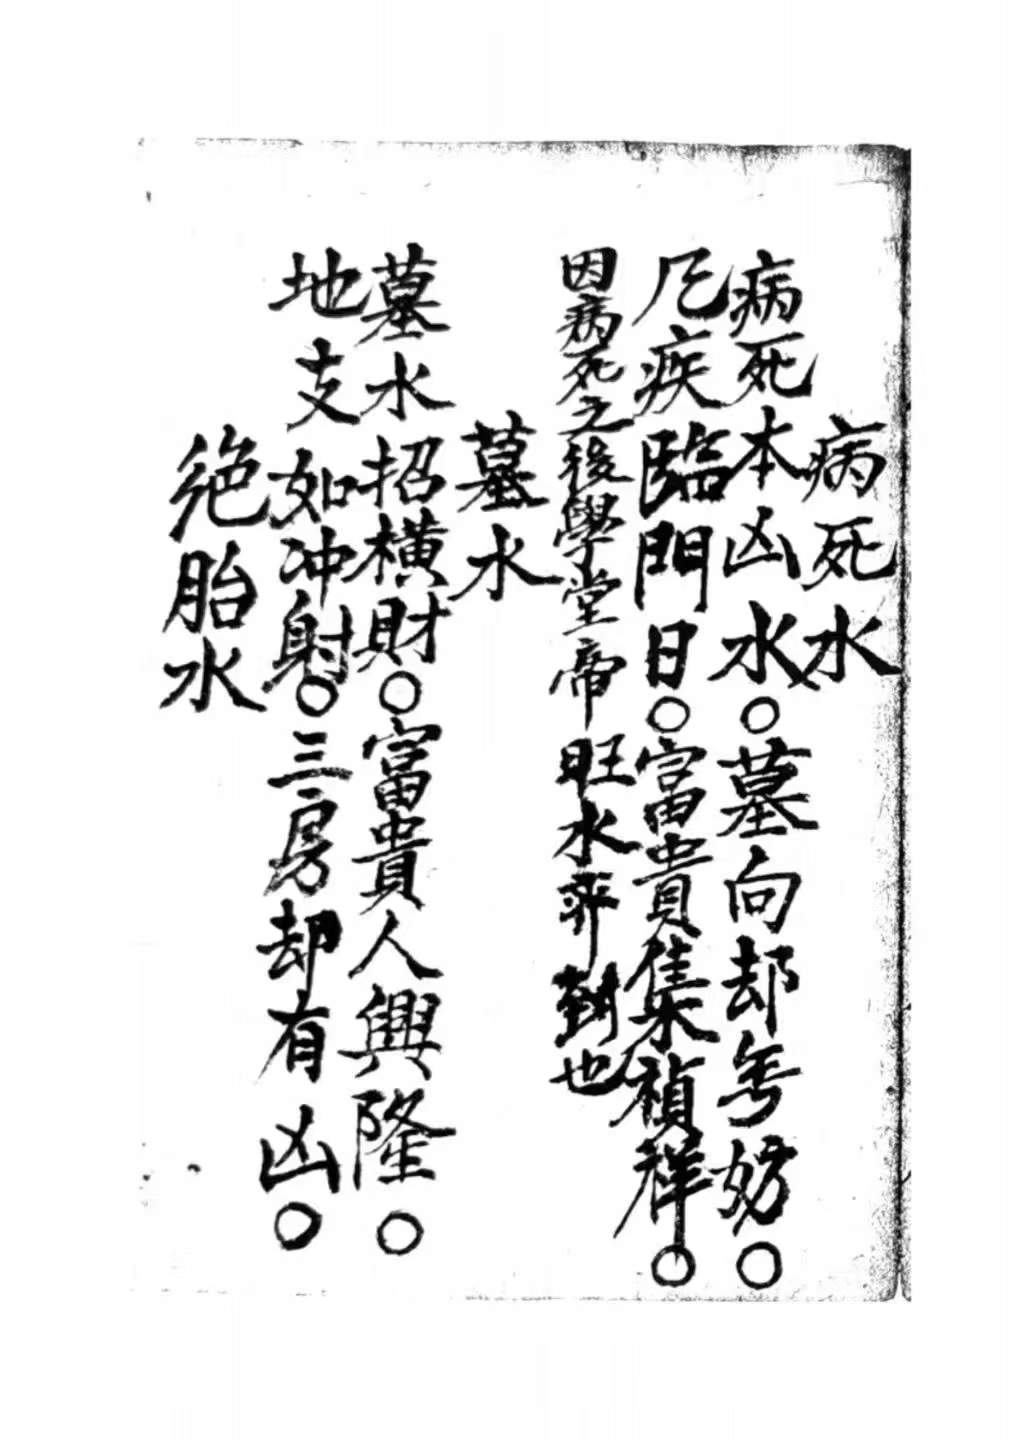 病死水
病死本凶水○墓向却無妨○
厄疾臨門日○富貴集禎祥○
因病死之後學堂帝旺水乖對也
墓水
墓水招橫財○富貴人興隆○
地支如冲射○三房却有凶○
絕胎水